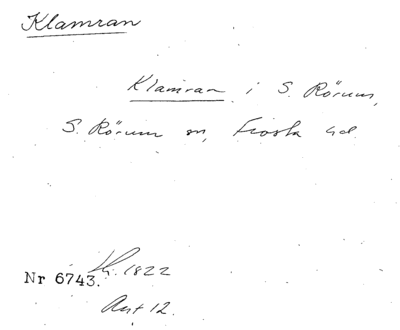 Klamran
Klamran i S. Rörum,
S. Rörum sn, Frosta hd.
Nr 6743. 1822
Avt 12.